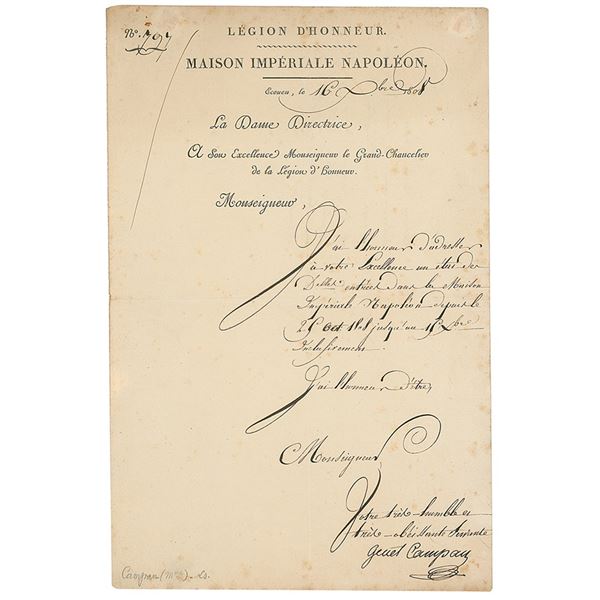 No. 797
LÉGION D'HONNEUR.
MAISON IMPÉRIALE NAPOLÉON.
Ecouen, le 16 Xbre 1808
La Dame Directrice,
A Son Excellence Monseigneur le Grand-Chancelier
de la Légion d'Honneur.
Monseigneur,
J'ai l'honneur d'adresser
à votre Excellence un état des
Delles. entrées dans la Maison
Impériale Napoléon depuis le
Oct jusqu'au 15 Xbre
Inclusivement.
J'ai l'honneur d'être,
Monseigneur
Votre très-humble et
très-obéissante servante
genet Campan
Campan (Mme) - Ls.